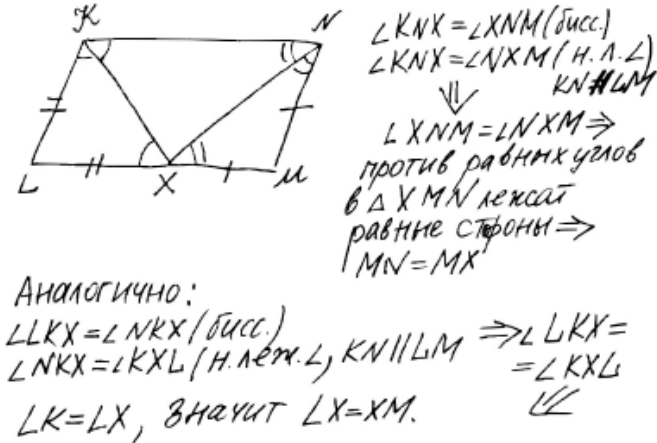 K
N
L
X
M
∠KNX=∠XNM(бисс.)
∠KNX=∠NXM(н.л.∠)
KN∥LM
⇓
∠XNM=∠NXM⇒
против равных углов
в △XMN лежат
равные стороны⇒
MN=MX
Аналогично:
∠LKX=∠NKX(бисс.)
∠NKX=∠KXL(н.леж.∠, KN||LM ⇒∠LKX=
=∠KXL
⇙
LK=LX, значит LX=XM.